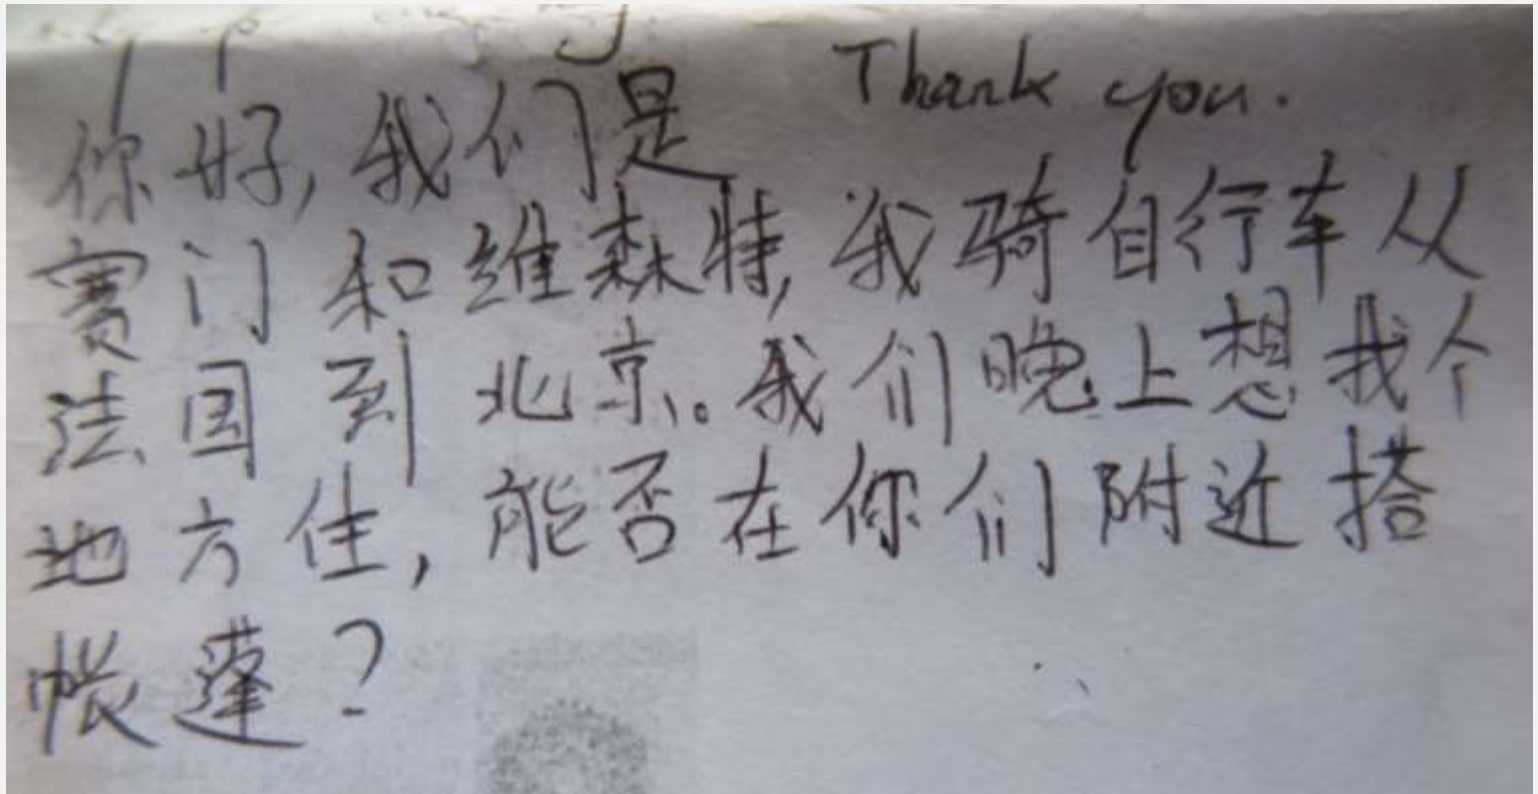 Thank you.
你好,我们是
赛门和维森特,我骑自行车从
法国到北京。我们晚上想找个
地方住,能否在你们附近搭
帐蓬?